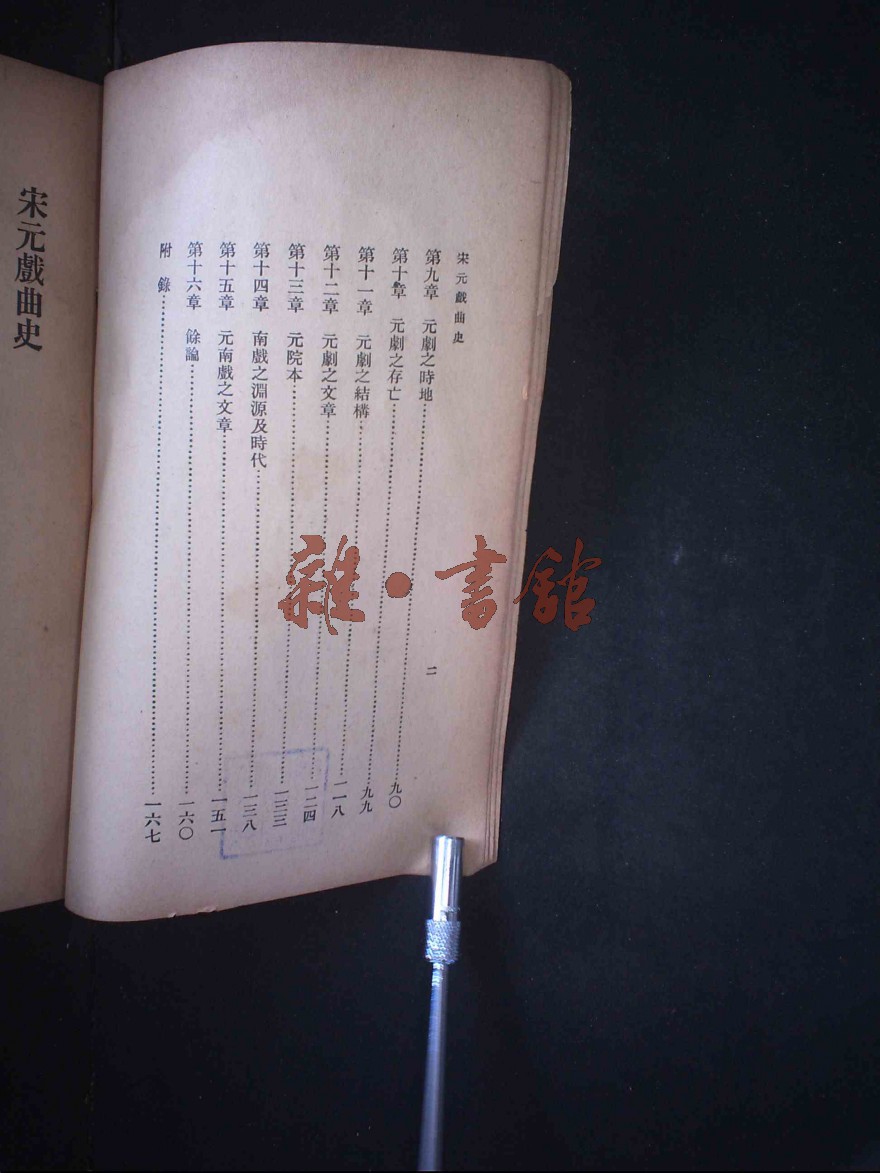 宋元戲曲史
二
第九章　元劇之時地……九〇
第十章　元劇之存亡……九九
第十一章　元劇之結構……一一八
第十二章　元劇之文章……一二四
第十三章　元院本……一三三
第十四章　南戲之淵源及時代……一三八
第十五章　元南戲之文章……一五一
第十六章　餘論……一六〇
附錄……一六七
宋元戲曲史
雜・書館